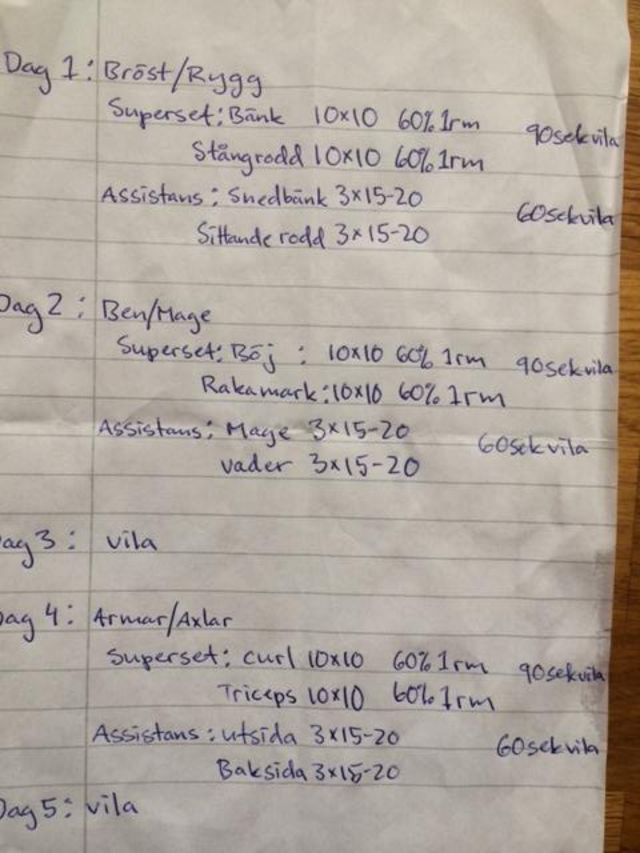 Dag 1: Bröst/Rygg
Superset: Bänk 10x10 60% 1rm 90sekvila
Stångrodd 10x10 60% 1rm
Assistans: Snedbänk 3x15-20 60sekvila
Sittande rodd 3x15-20
Dag 2: Ben/Mage
Superset: Böj: 10x10 60% 1rm 90sekvila
Rakamark: 10x10 60% 1rm
Assistans: Mage 3x15-20 60sekvila
vader 3x15-20
ag 3: vila
ag 4: Armar/Axlar
Superset: curl 10x10 60% 1rm 90sekvila
Triceps 10x10 60% 1rm
Assistans: utsida 3x15-20 60sekvila
Baksida 3x15-20
Dag 5: vila